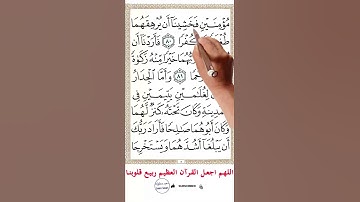 مُؤْمِنَيْنِ فَخَشِينَآ أَن يُرْهِقَهُمَا
كُفْرًا ۝٨٠ فَأَرَدْنَآ أَن
خَيْرًا مِّنْهُ زَكَوٰةً
۝٨١ وَأَمَّا ٱلْجِدَارُ
لِغُلَٰمَيْنِ يَتِيمَيْنِ فِي
وَكَانَ تَحْتَهُۥ كَنزٌ لَّهُمَا
وَكَانَ أَبُوهُمَا صَٰلِحًا فَأَرَادَ رَبُّكَ
أَن يَبْلُغَآ أَشُدَّهُمَا وَيَسْتَخْرِجَا
اللهم اجعل القرآن العظيم ربيع قلوبنا